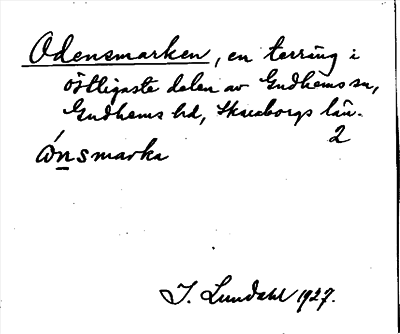 Odensmarken, en terräng i
östligaste delen av Gudhems sn,
Gudhems hd, Skaraborgs län.
2
ónsmarka
I. Lundahl 1927.